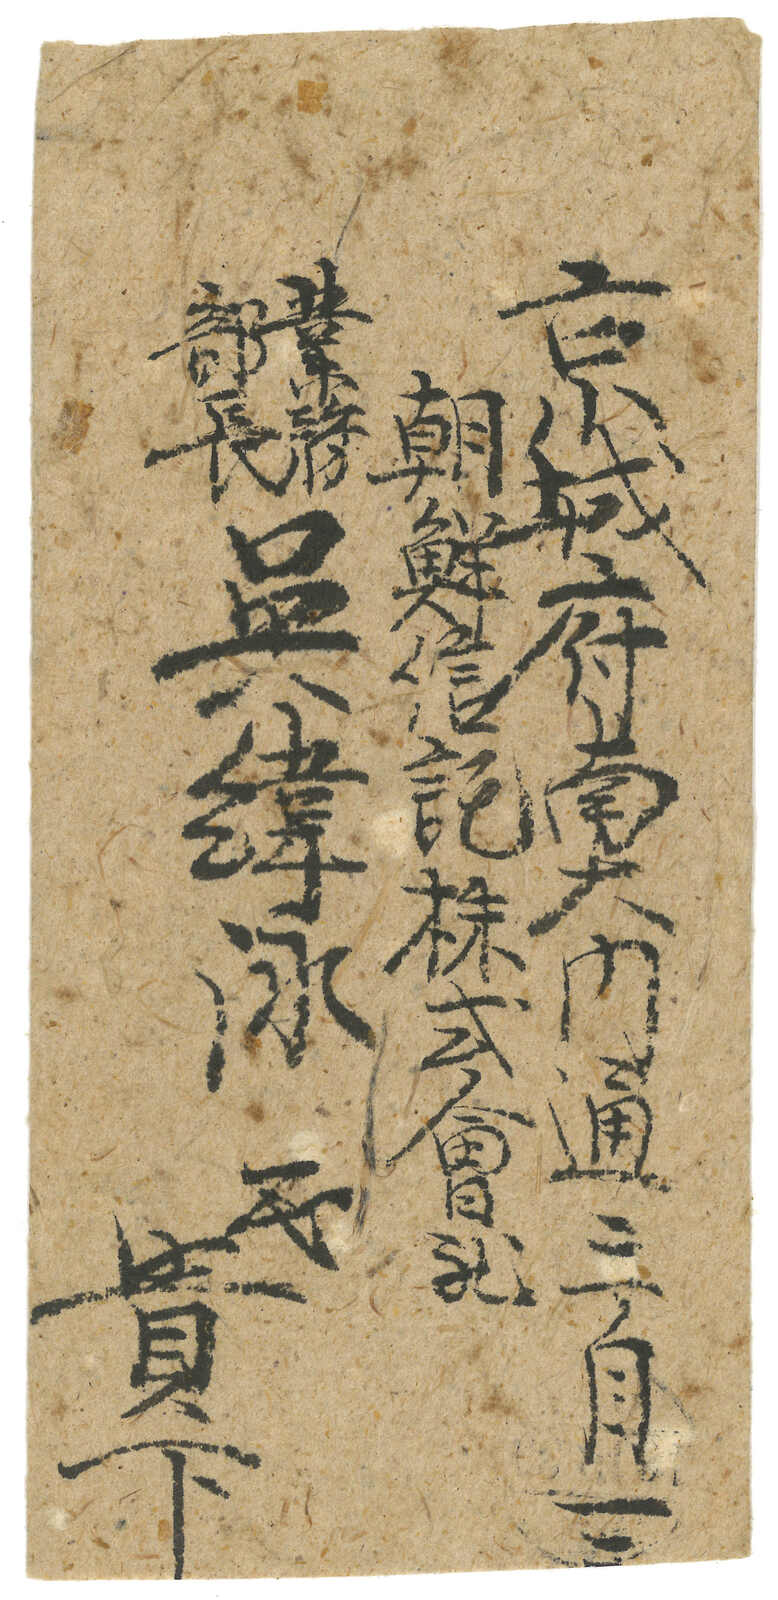 京城府南大門通三丁目一三
朝鮮信託株式會社
業務
部長
吳緯泳 氏
貴下